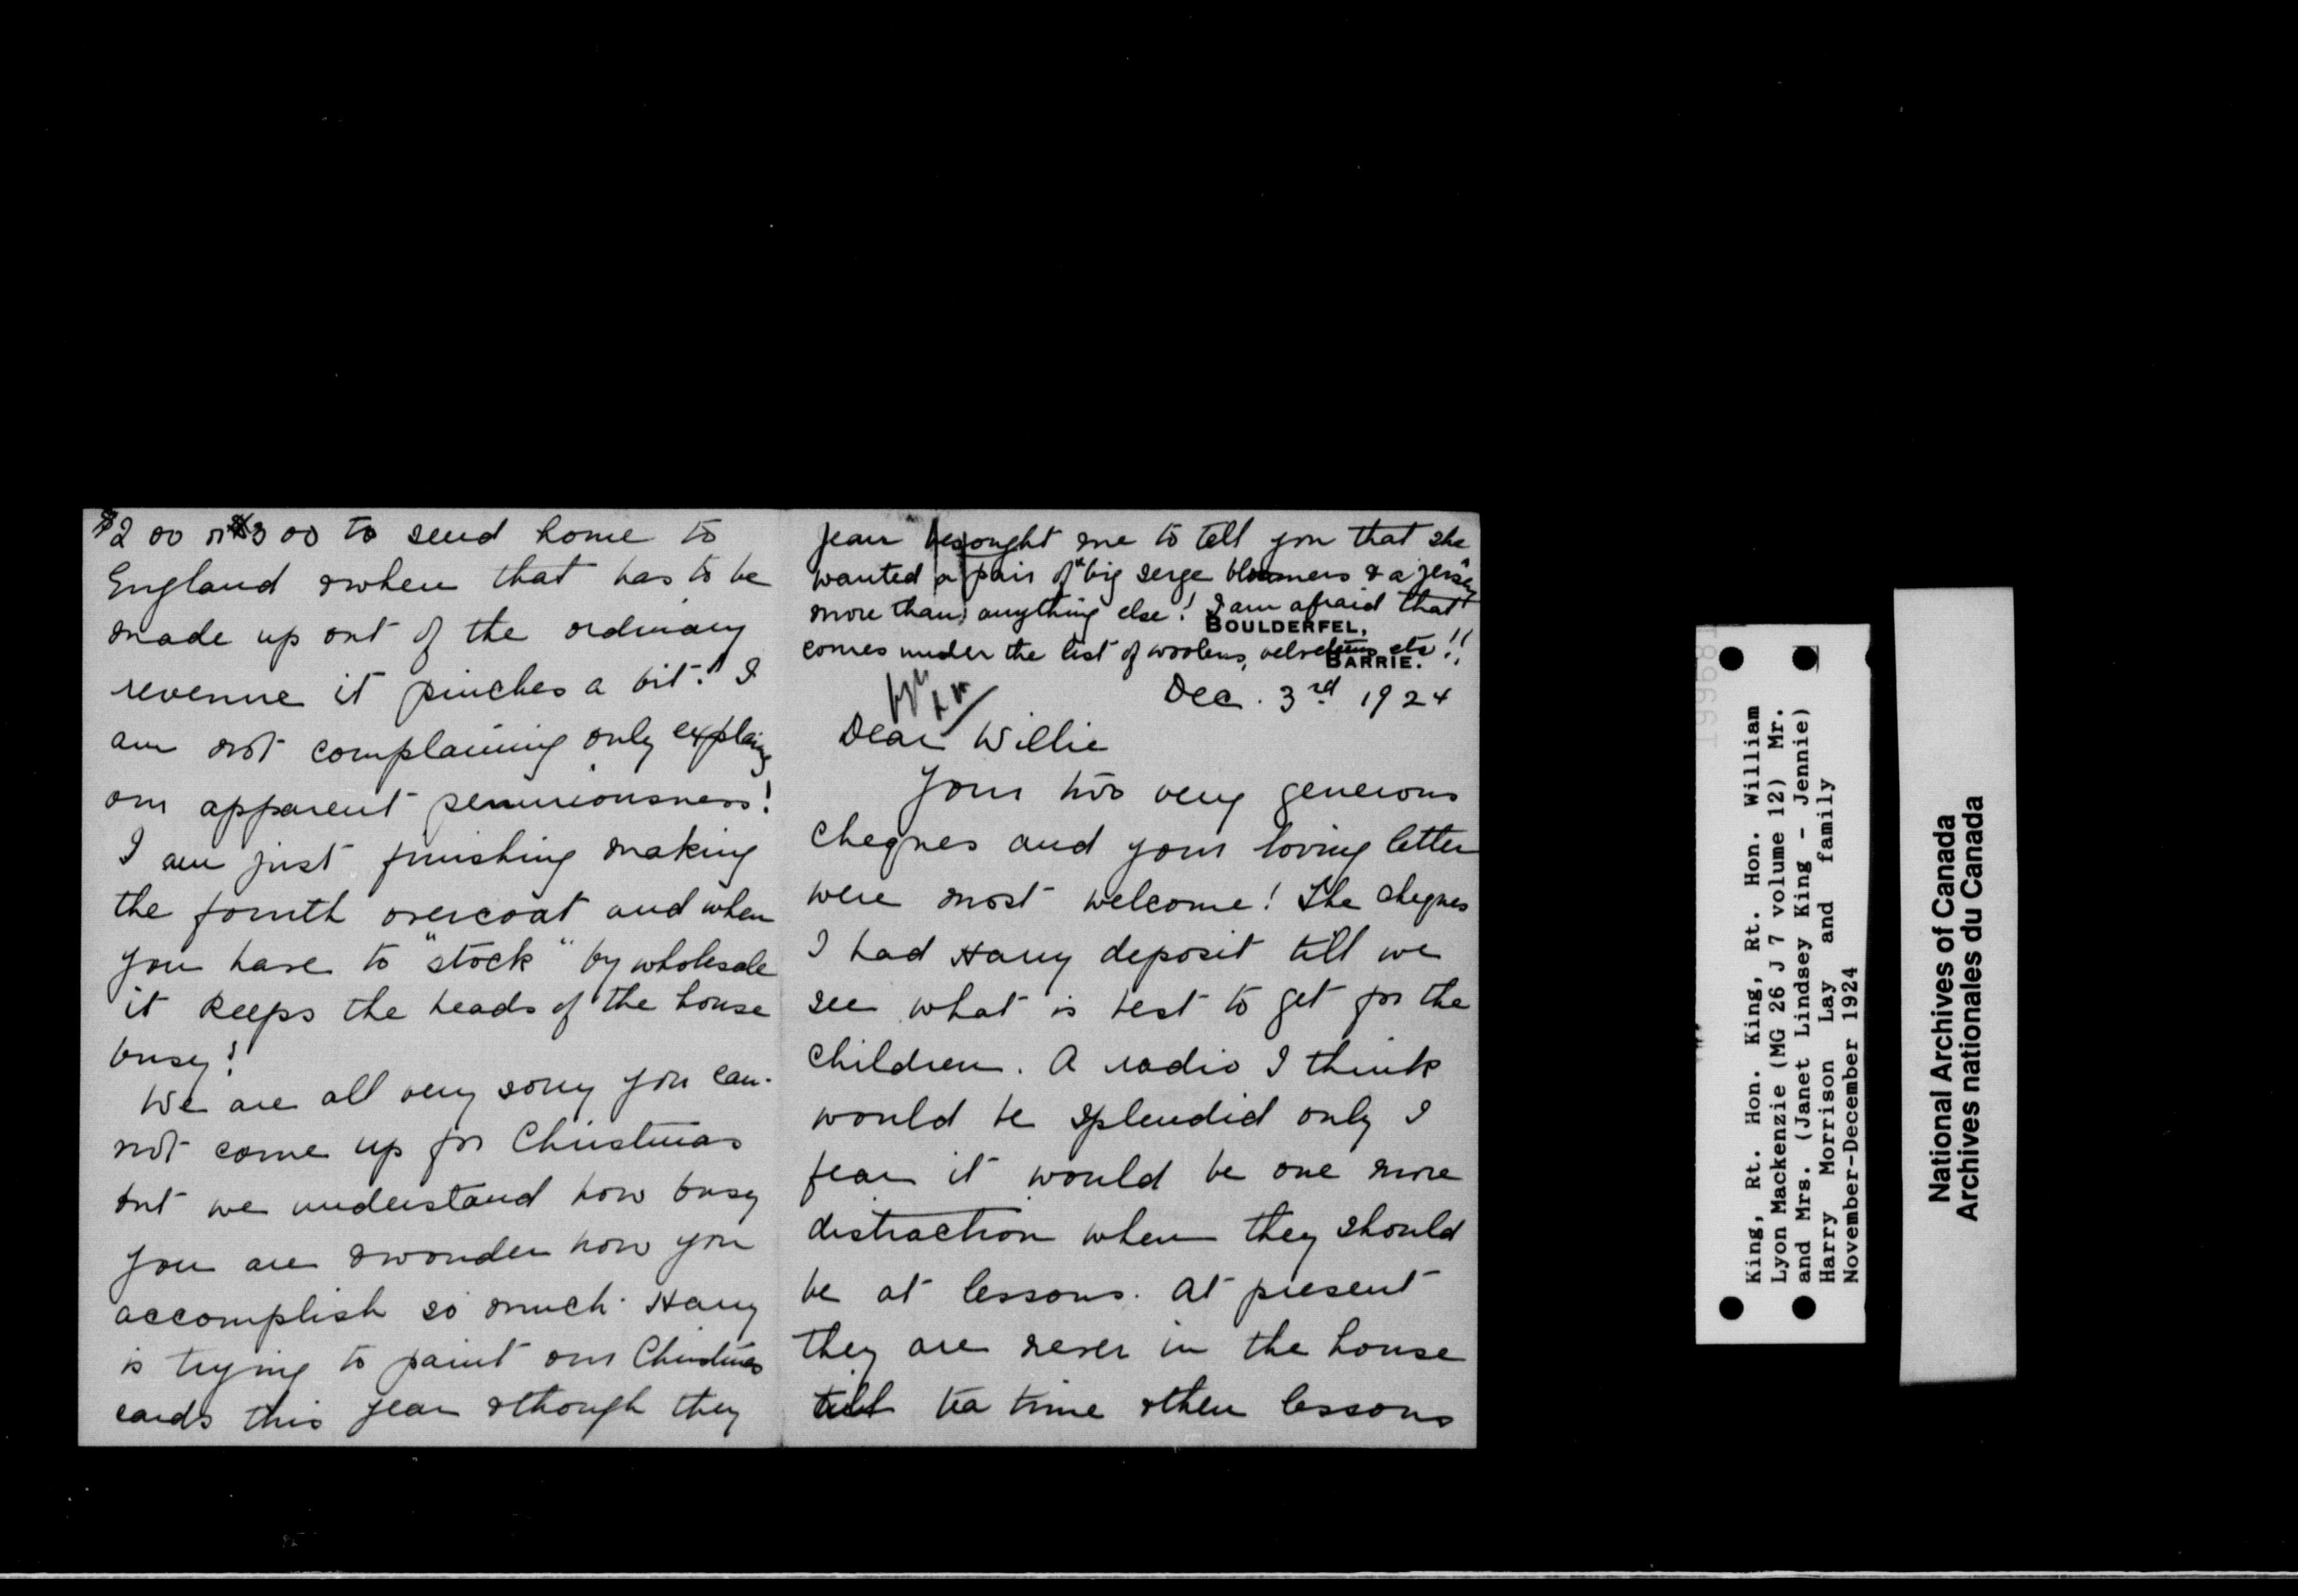 $200 or $300 to send home to
England & when that has to be
made up out of the ordinary
revenue it pinches a bit! I
am not complaining only explaining
our apparent penuriousness!
I am just finishing making
the fourth overcoat and when
you have to "stock" by wholesale
it keeps the heads of the house
busy!
We are all very sorry you can-
not come up for Christmas
but we understand how busy
you are & wonder how you
accomplish so much. Harry
is trying to paint our Christmas
cards this year & though they
Jean besought me to tell you that she
wanted a pair of "big serge bloomers & a jersey"
more than anything else! I am afraid that
comes under the list of woolens, velveteens etc!!
BOULDERFEL,
BARRIE.
Dec. 3rd 1924
Dear Willie
Your two very generous
cheques and your loving letter
were most welcome! The cheques
I had Harry deposit till we
see what is best to get for the
children. A radio I think
would be splendid only I
fear it would be one more
distraction when they should
be at lessons. At present
they are never in the house
till tea time & then lessons
King, Rt. Hon. King, Rt. Hon. William
Lyon Mackenzie (MG 26 J 7 volume 12) Mr.
and Mrs. (Janet Lindsey King - Jennie)
Harry Morrison Lay and family
November-December 1924
National Archives of Canada
Archives nationales du Canada